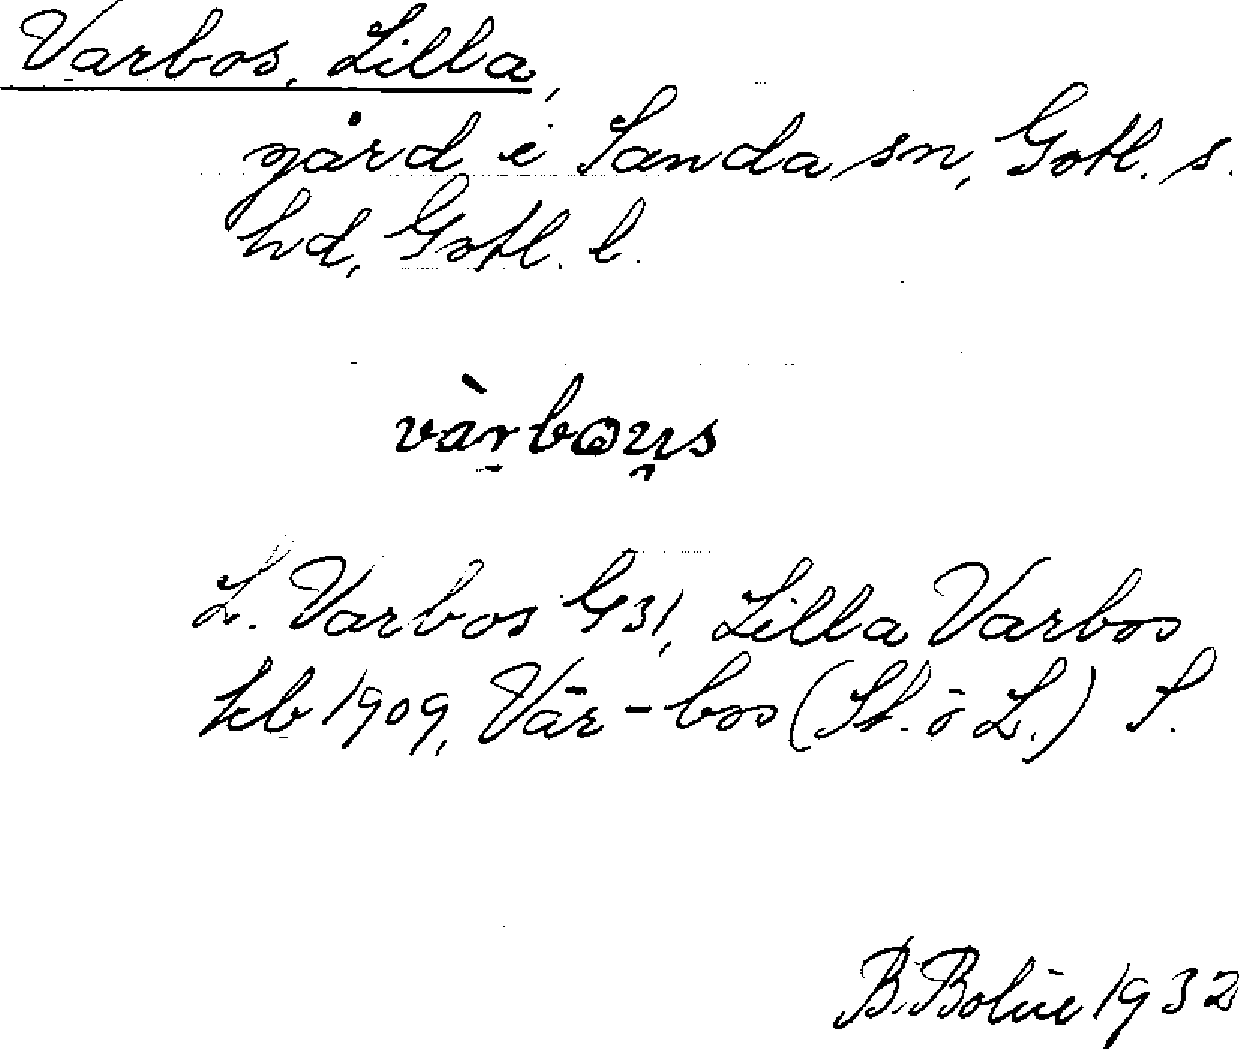 Varbos, Lilla,
gård i Sanda sn, Gotl. s.
hd, Gotl. l.
vàrbous
L. Varbos G31, Lilla Varbos
kb 1909, Vār-bos (St. o L.) S.
B. Bolin 1932